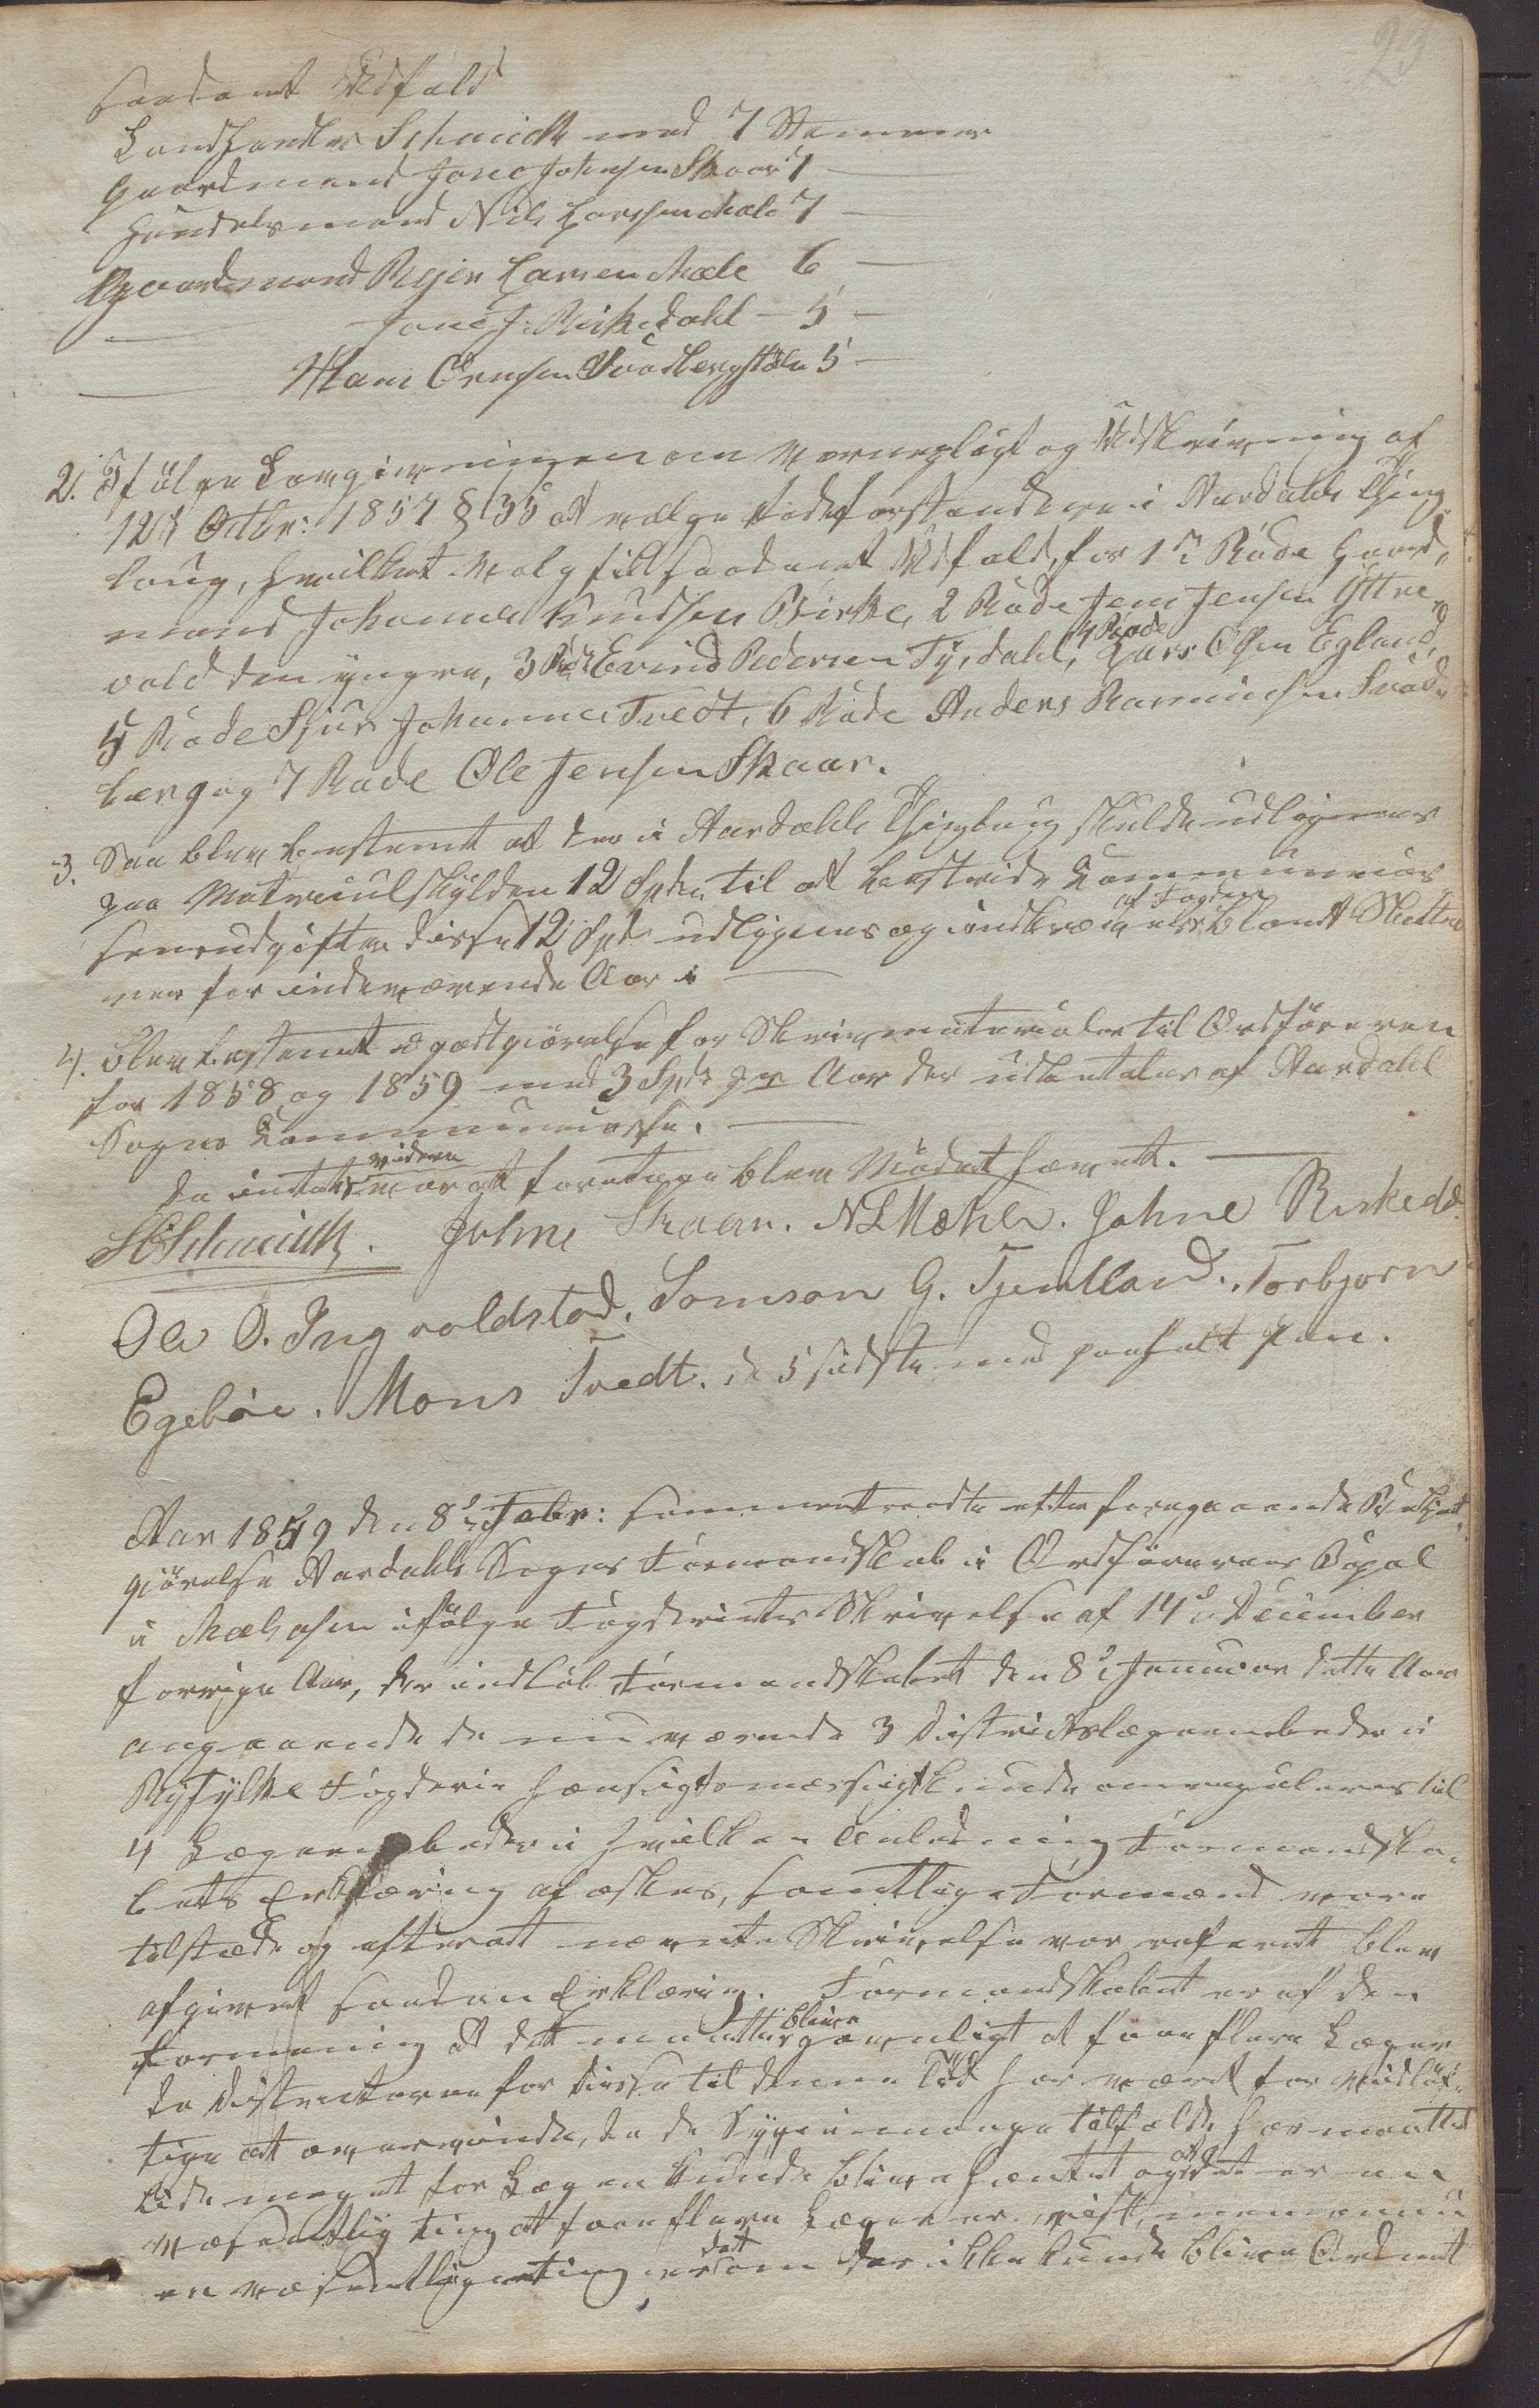 23
saadant Udfald
Landhandler Schmidt med 7 Stemmer
Gaardmand Jone Johnsen Skaar 7 —
Huusmand Nils Larssen Mæle 7 —
Gaardmand Rejer Larsen Mæle 6 —
— Jone J: Riskedahl — 5 —
— Hans Ormsen Svadbergstøln 5 —
2. Ifölge Lovgivningen om Værnepligt og Udskrivning af
12te Octbr: 1857 § 35 at vælge Rodeforstandere i Aardahls Thing„
laug, hvilket Valg fik saadant Udfald, for 1ste Rode Gaard„
mand Johannes Knudsen Birke, 2 Rode Jens Jensen Yttre„
vold den yngre, 3 Rode Evind Pedersen Tysdahl, 4 Rode Lars Olsen Egland,
5 Rode Sjur Johannes Tvedt, 6 Rode Anders Rasmusen Svad„
berg og 7 Rode Ole Jensen Skaar.
3. Saa blev bestemt at der i Aardahls Thinglaug skulde udlignes
paa Matriculskylden 12 Spd. til at bestride Communecas„
sens udgifter disse 12 Spd. udlignes og indkræves af Fogden blandt Skatter„
ner for indeværende Aar i —
4. blev bestemt godtgjörelse for Skrivmaterialer til Ordföreren
for 1858 og 1859 med 3 Spd. pr Aar der udbetales af Aardahl
Sogns Communecasse. —
da intet videre var at foretage blev Mödet hævet. —
Schmidt. Johne Skaar. N L Mæhle. Johne Riskedal.
Ole O. Ingvoldstad. Samson G. Tjentland. Torbjørn
Egebøe. Mons Tvedt. de 5 sidste med paaholt Pen.
Aar 1859 den 8de Febr: sammentraadte efter foregaaende Bekjendt„
gjörelse Aardahls Sogns Formandskab i Ordförerens Bopæl
i Mælsosen ifölge Fogderiets Skrivelse af 14de December
forrige Aar, der indlöb Formandskabet den 8de Januar dette Aar
angaaende de nuværende 3 Districtslægeembeder i
Ryfylke Fogderie hensigtsmæssigt kunde omreguleres til
4 Lægeembeder i hvilken Anledning Formandska„
bets Erklæring afæskes, samtlige Formænd vare
tilstæde og efterat nævnte Skrivelse var referert blev
afgivet saadan Erklæring. Formandskabet er af den
Formening at det maatte blive gavnligt at faae flere Læger
da Districterne for disse til denne Tid har været for vidtlöf„
tige at overvinde, da de Syge i mange tilfælde har maattet
lide meget for Lægen kunde blive hentet og at dette er en
væsentlig ting at faae flere Læger er vist, men ennu
en væsentligere ting er det om der ikke kunde blive Ordnet